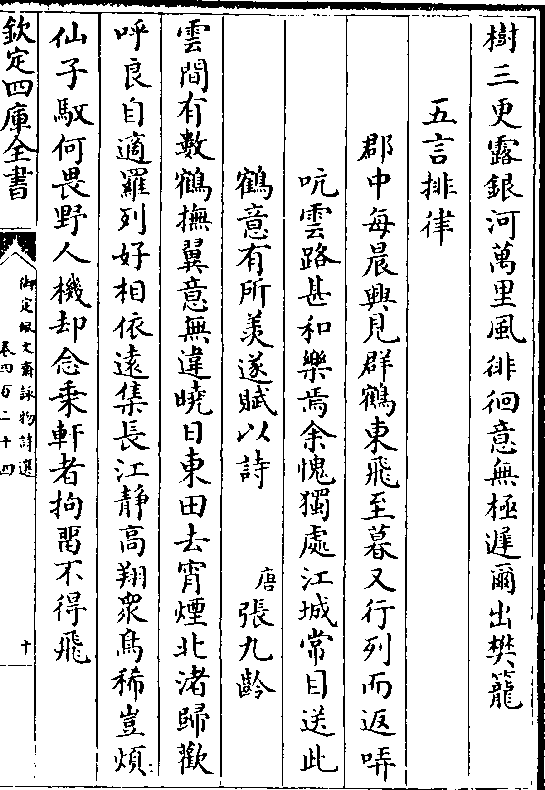 樹三更露銀河萬里風徘徊意無極遲爾出樊籠
五言排律
郡中每晨興見群鶴東飛至暮又行列而返哢
吭雲路甚和樂焉余愧獨處江城常目送此
鶴意有所羡遂賦以詩 唐張九齡
雲間有數鶴撫翼意無違曉日東田去宵煙北渚歸歡
呼良自適羅列好相依遠集長江靜高翔衆鳥稀豈煩
仙子馭何畏野人機却念乗軒者拘留不得飛
欽定四庫全書
御定佩文齋詠物詩選
卷四百二十四
十